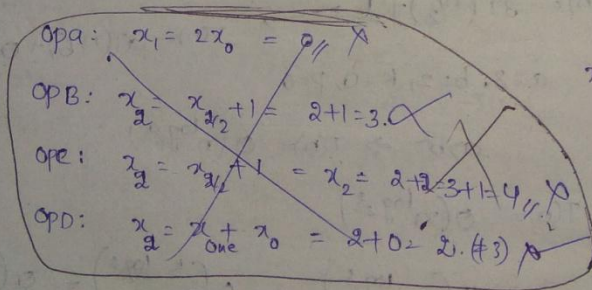 OPA: x₁ = 2x₀ = 0,, ×
OPB: x₂ = x_{2/2} + 1 = 2+1 = 3.
OPC: x₂ = x_{2/2} + 1 = x₂ = 2+2=3+1=4,, ×
OPD: x₂ = x_{one} + x₀ = 2+0= 2. (≠3) ×